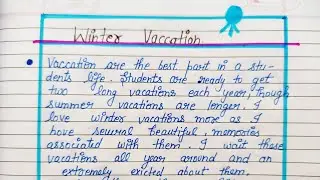 Winter Vaccation.
Vaccation are the best part in a stu-
dents life. Students are ready to get
two long vacations each year, though
summer vacations are longer. I
love winter vacations more as I
have several beautiful memories
associated with them. I wait these
vacations all year around and am
extremely exicted about them.